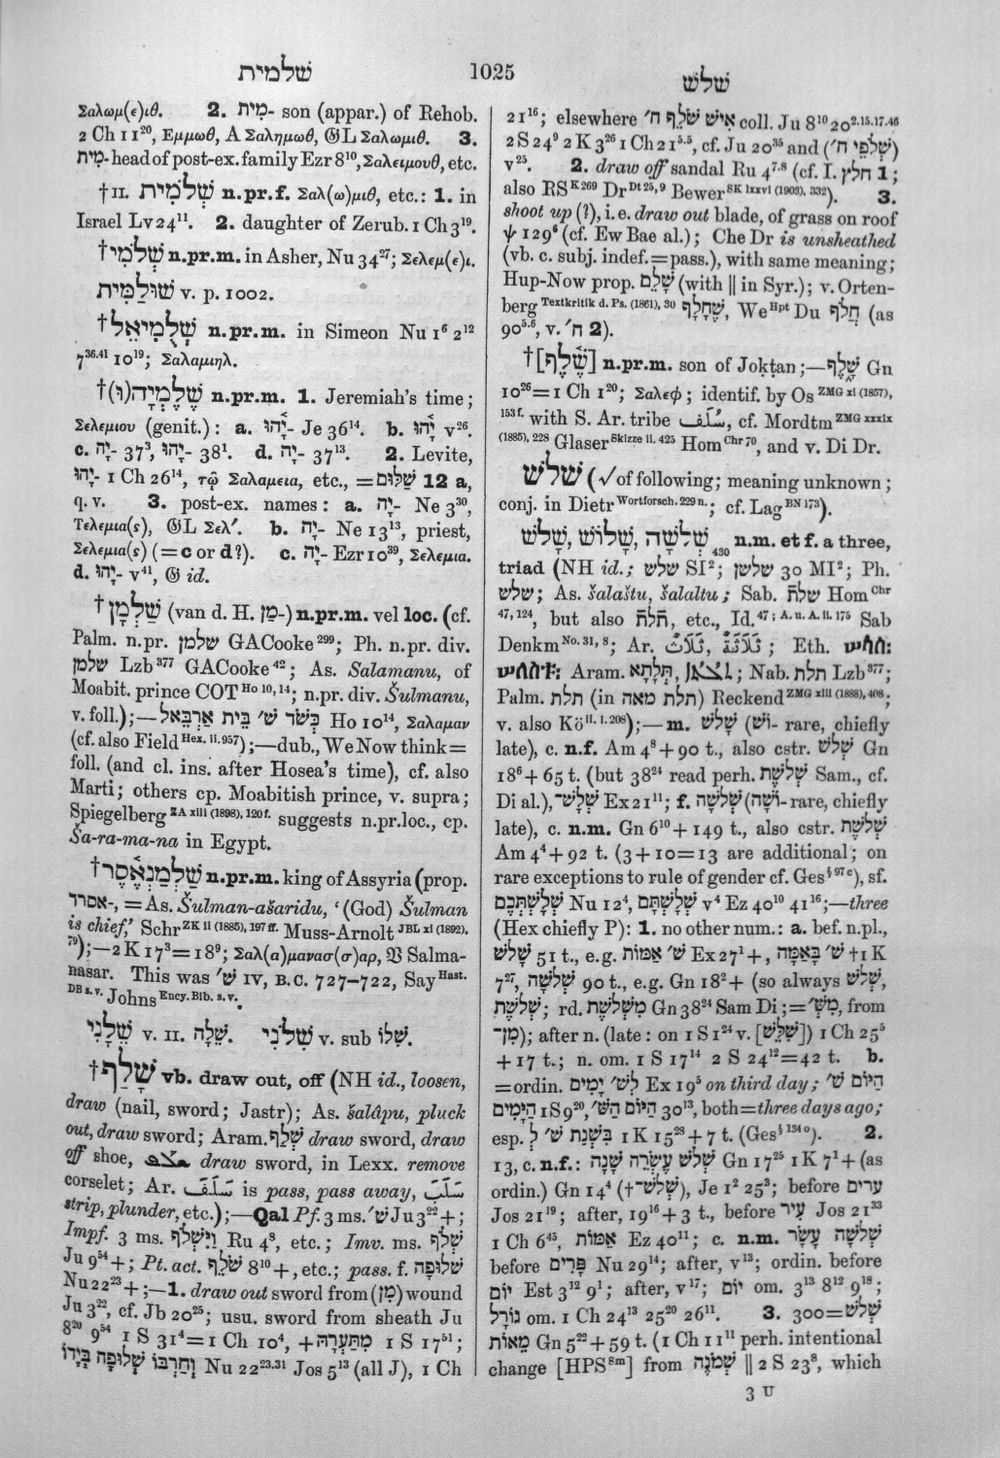 שלמית
1025
שלש
Σαλωμ(ε)ιθ. 2. מִית- son (appar.) of Rehob.
2 Ch 11²⁰, Εμμωθ, A Σαλημωθ, 𝔊L Σαλωμιθ. 3.
מִית- head of post-ex. family Ezr 8¹⁰, Σαλειμουθ, etc.
†II. שְׁלֹמִית n.pr.f. Σαλ(ω)μιθ, etc.: 1. in
Israel Lv 24¹¹. 2. daughter of Zerub. 1 Ch 3¹⁹.
†שְׁלֹמִי n.pr.m. in Asher, Nu 34²⁷; Σελεμ(ε)ι.
שׁוּלַמִּית v. p. 1002.
†שְׁלֻמִיאֵל n.pr.m. in Simeon Nu 1⁶ 2¹²
7³⁶·⁴¹ 10¹⁹; Σαλαμιηλ.
†שֶׁלֶמְיָה(וּ) n.pr.m. 1. Jeremiah's time;
Σελεμιου (genit.): a. יָ֫הוּ- Je 36¹⁴. b. יָ֫הוּ v²⁶.
c. יָה- 37³, יָהוּ- 38¹. d. יָה- 37¹³. 2. Levite,
יָהוּ- 1 Ch 26¹⁴, τῷ Σαλαμεια, etc., = שַׁלּוּם 12 a,
q. v. 3. post-ex. names: a. יָה- Ne 3³⁰,
Τελεμια(ς), 𝔊L Σελ′. b. יָה- Ne 13¹³, priest,
Σελεμια(ς) (= c or d?). c. יָה- Ezr 10³⁹, Σελεμια.
d. יָהוּ- v⁴¹, 𝔊 id.
†שַׁלְמַן (van d. H. מָן-) n.pr.m. vel loc. (cf.
Palm. n.pr. שלמן GACooke²⁹⁹; Ph. n.pr. div.
שלמן Lzb³⁷⁷ GACooke⁴²; As. Salamanu, of
Moabit. prince COT Ho 10,14; n.pr. div. Šulmanu,
v. foll.);—כְּשֹׁד שׁ׳ בֵּית אַרְבֵאל Ho 10¹⁴, Σαλαμαν
(cf. also Field Hex. ii. 957);—dub., We Now think =
foll. (and cl. ins. after Hosea's time), cf. also
Marti; others cp. Moabitish prince, v. supra;
Spiegelberg ZA xiii (1898), 120 f. suggests n.pr.loc., cp.
Ša-ra-ma-na in Egypt.
†שַׁלְמַנְאֶ֫סֶר n.pr.m. king of Assyria (prop.
אסרד-, = As. Šulman-ašaridu, ‘(God) Šulman
is chief,’ Schr ZK ii (1885), 197 ff. Muss-Arnolt JBL xi (1892),
79);—2 K 17³ = 18⁹; Σαλ(α)μανασ(σ)αρ, 𝔙 Salma-
nasar. This was שׁ׳ IV, B.C. 727–722, Say Hast.
DB s.v. Johns Ency. Bib. s.v.
שֵׁלָנִי v. II. שֵׁלָה. שִׁלֹנִי v. sub שִׁלֹו.
†שָׁלַף vb. draw out, off (NH id., loosen,
draw (nail, sword; Jastr); As. šalâpu, pluck
out, draw sword; Aram. שְׁלַף draw sword, draw
off shoe, ܫܠܦ draw sword, in Lexx. remove
corselet; Ar. سَلَفَ is pass, pass away, سَلَبَ
strip, plunder, etc.);—Qal Pf. 3 ms. שׁ׳ Ju 3²²+;
Impf. 3 ms. וַיִּשְׁלֹף Ru 4⁸, etc.; Imv. ms. שְׁלֹף
Ju 9⁵⁴+; Pt. act. שֹׁלֵף 8¹⁰+, etc.; pass. f. שְׁלוּפָה
Nu 22²³+;—1. draw out sword from (מִן) wound
Ju 3²², cf. Jb 20²⁵; usu. sword from sheath Ju
8²⁰ 9⁵⁴ 1 S 31⁴ = 1 Ch 10⁴, + מִתַּעְרָהּ 1 S 17⁵¹;
וְחַרְבּוֹ שְׁלוּפָה בְּיָדוֹ Nu 22²³·³¹ Jos 5¹³ (all J), 1 Ch
21¹⁶; elsewhere אִישׁ שֹׁלֵף ח׳ coll. Ju 8¹⁰ 20²·¹⁵·¹⁷·⁴⁶
2 S 24⁹ 2 K 3²⁶ 1 Ch 21⁵·⁵, cf. Ju 20³⁵ and (שֹׁלְפֵי ח׳)
v²⁵. 2. draw off sandal Ru 4⁷·⁸ (cf. I. חלץ 1;
also RS K 269 Dr Dt 25, 9 Bewer SK lxxvi (1903), 332). 3.
shoot up (?), i.e. draw out blade, of grass on roof
ψ 129⁶ (cf. Ew Bae al.); Che Dr is unsheathed
(vb. c. subj. indef. = pass.), with same meaning;
Hup-Now prop. שָׁלַם (with ‖ in Syr.); v. Orten-
berg Textkritik d. Ps. (1861), 30 שֶׁחָלַף, We Hpt Du חֲלֹף (as
90⁵·⁶, v. ח׳ 2).
†[שֶׁ֫לֶף] n.pr.m. son of Joḳṭan;—שָׁלֶף Gn
10²⁶ = 1 Ch 1²⁰; Σαλεφ; identif. by Os ZMG xi (1857),
153 f. with S. Ar. tribe سُلَف, cf. Mordtm ZMG xxxix
(1885), 228 Glaser Skizze ii. 425 Hom Chr 70, and v. Di Dr.
שׁלשׁ (√ of following; meaning unknown;
conj. in Dietr Wortforsch. 229 n.; cf. Lag BN 173).
שָׁלשׁ, שָׁלוֹשׁ, שְׁלֹשָׁה 430 n.m. et f. a three,
triad (NH id.; שלש SI²; שלשן 30 MI²; Ph.
שלש; As. šalaštu, šalaltu; Sab. שלת Hom Chr
47, 124, but also תלת, etc., Id. 47; A. u. A. ii. 175 Sab
Denkm No. 31, 8; Ar. ثَلَاثَةٌ, ثَلَاثٌ; Eth. ሠላስ፡
ሠላስቱ፡ Aram. תְּלָתָא, ܬܠܬܐ; Nab. תלת Lzb³⁷⁷;
Palm. תלת (in תלת מאה) Reckend ZMG xlii (1888), 408;
v. also Kö ii. 1. 208);—m. שָׁלֹשׁ (וֹשׁ- rare, chiefly
late), c. n.f. Am 4⁸ + 90 t., also cstr. שְׁלֹשׁ Gn
18⁶ + 65 t. (but 38²⁴ read perh. שְׁלֹשֶׁת Sam., cf.
Di al.), שְׁלָשׁ־ Ex 21¹¹; f. שְׁלֹשָׁה (וֹשָׁה- rare, chiefly
late), c. n.m. Gn 6¹⁰ + 149 t., also cstr. שְׁלֹשֶׁת
Am 4⁴ + 92 t. (3 + 10 = 13 are additional; on
rare exceptions to rule of gender cf. Ges § 97 c), sf.
שְׁלָשְׁתְּכֶם Nu 12⁴, שְׁלָשְׁתָּם v⁴ Ez 40¹⁰ 41¹⁶;—three
(Hex chiefly P): 1. no other num.: a. bef. n.pl.,
שָׁלֹשׁ 51 t., e.g. שׁ׳ אַמּוֹת Ex 27¹+, שׁ׳ בָּאַמָּה †1 K
7²⁷, שְׁלֹשָׁה 90 t., e.g. Gn 18²+ (so always שְׁלֹשׁ,
שְׁלֹשֶׁת; rd. מִשְּׁלֹשֶׁת Gn 38²⁴ Sam Di; = מִשְּׁ׳, from
מִן־); after n. (late: on 1 S 1²⁴ v. [שִׁלֵּשׁ]) 1 Ch 25⁵
+ 17 t.; n. om. 1 S 17¹⁴ 2 S 24¹² = 42 t. b.
= ordin. לְשׁ׳ יָמִים Ex 19¹⁵ on third day; הַיּוֹם שׁ׳
הַיָּמִים 1 S 9²⁰, הַיּוֹם הַשּׁ׳ 30¹³, both = three days ago;
esp. בִּשְׁנַת שׁ׳ לְ 1 K 15²⁸ + 7 t. (Ges § 134 o). 2.
13, c. n.f.: שְׁלֹשׁ עֶשְׂרֵה שָׁנָה Gn 17²⁵ 1 K 7¹+ (as
ordin.) Gn 14⁴ (†שְׁלֹשׁ־), Je 1² 25³; before עָרִים
Jos 21¹⁹; after, 19¹⁶ + 3 t., before עִיר Jos 21³³
1 Ch 6⁴⁵, אַמּוֹת Ez 40¹¹; c. n.m. שְׁלֹשָׁה עָשָׂר
before פָּרִים Nu 29¹⁴; after, v¹³; ordin. before
יוֹם Est 3¹² 9¹; after, v¹⁷; יוֹם om. 3¹³ 8¹² 9¹⁸;
גּוֹרָל om. 1 Ch 24¹³ 25²⁰ 26¹¹. 3. 300 = שְׁלֹשׁ
מֵאוֹת Gn 5²² + 59 t. (1 Ch 11¹¹ perh. intentional
change [HPS Sm] from שְׁמֹנֶה ‖ 2 S 23⁸, which
3 U